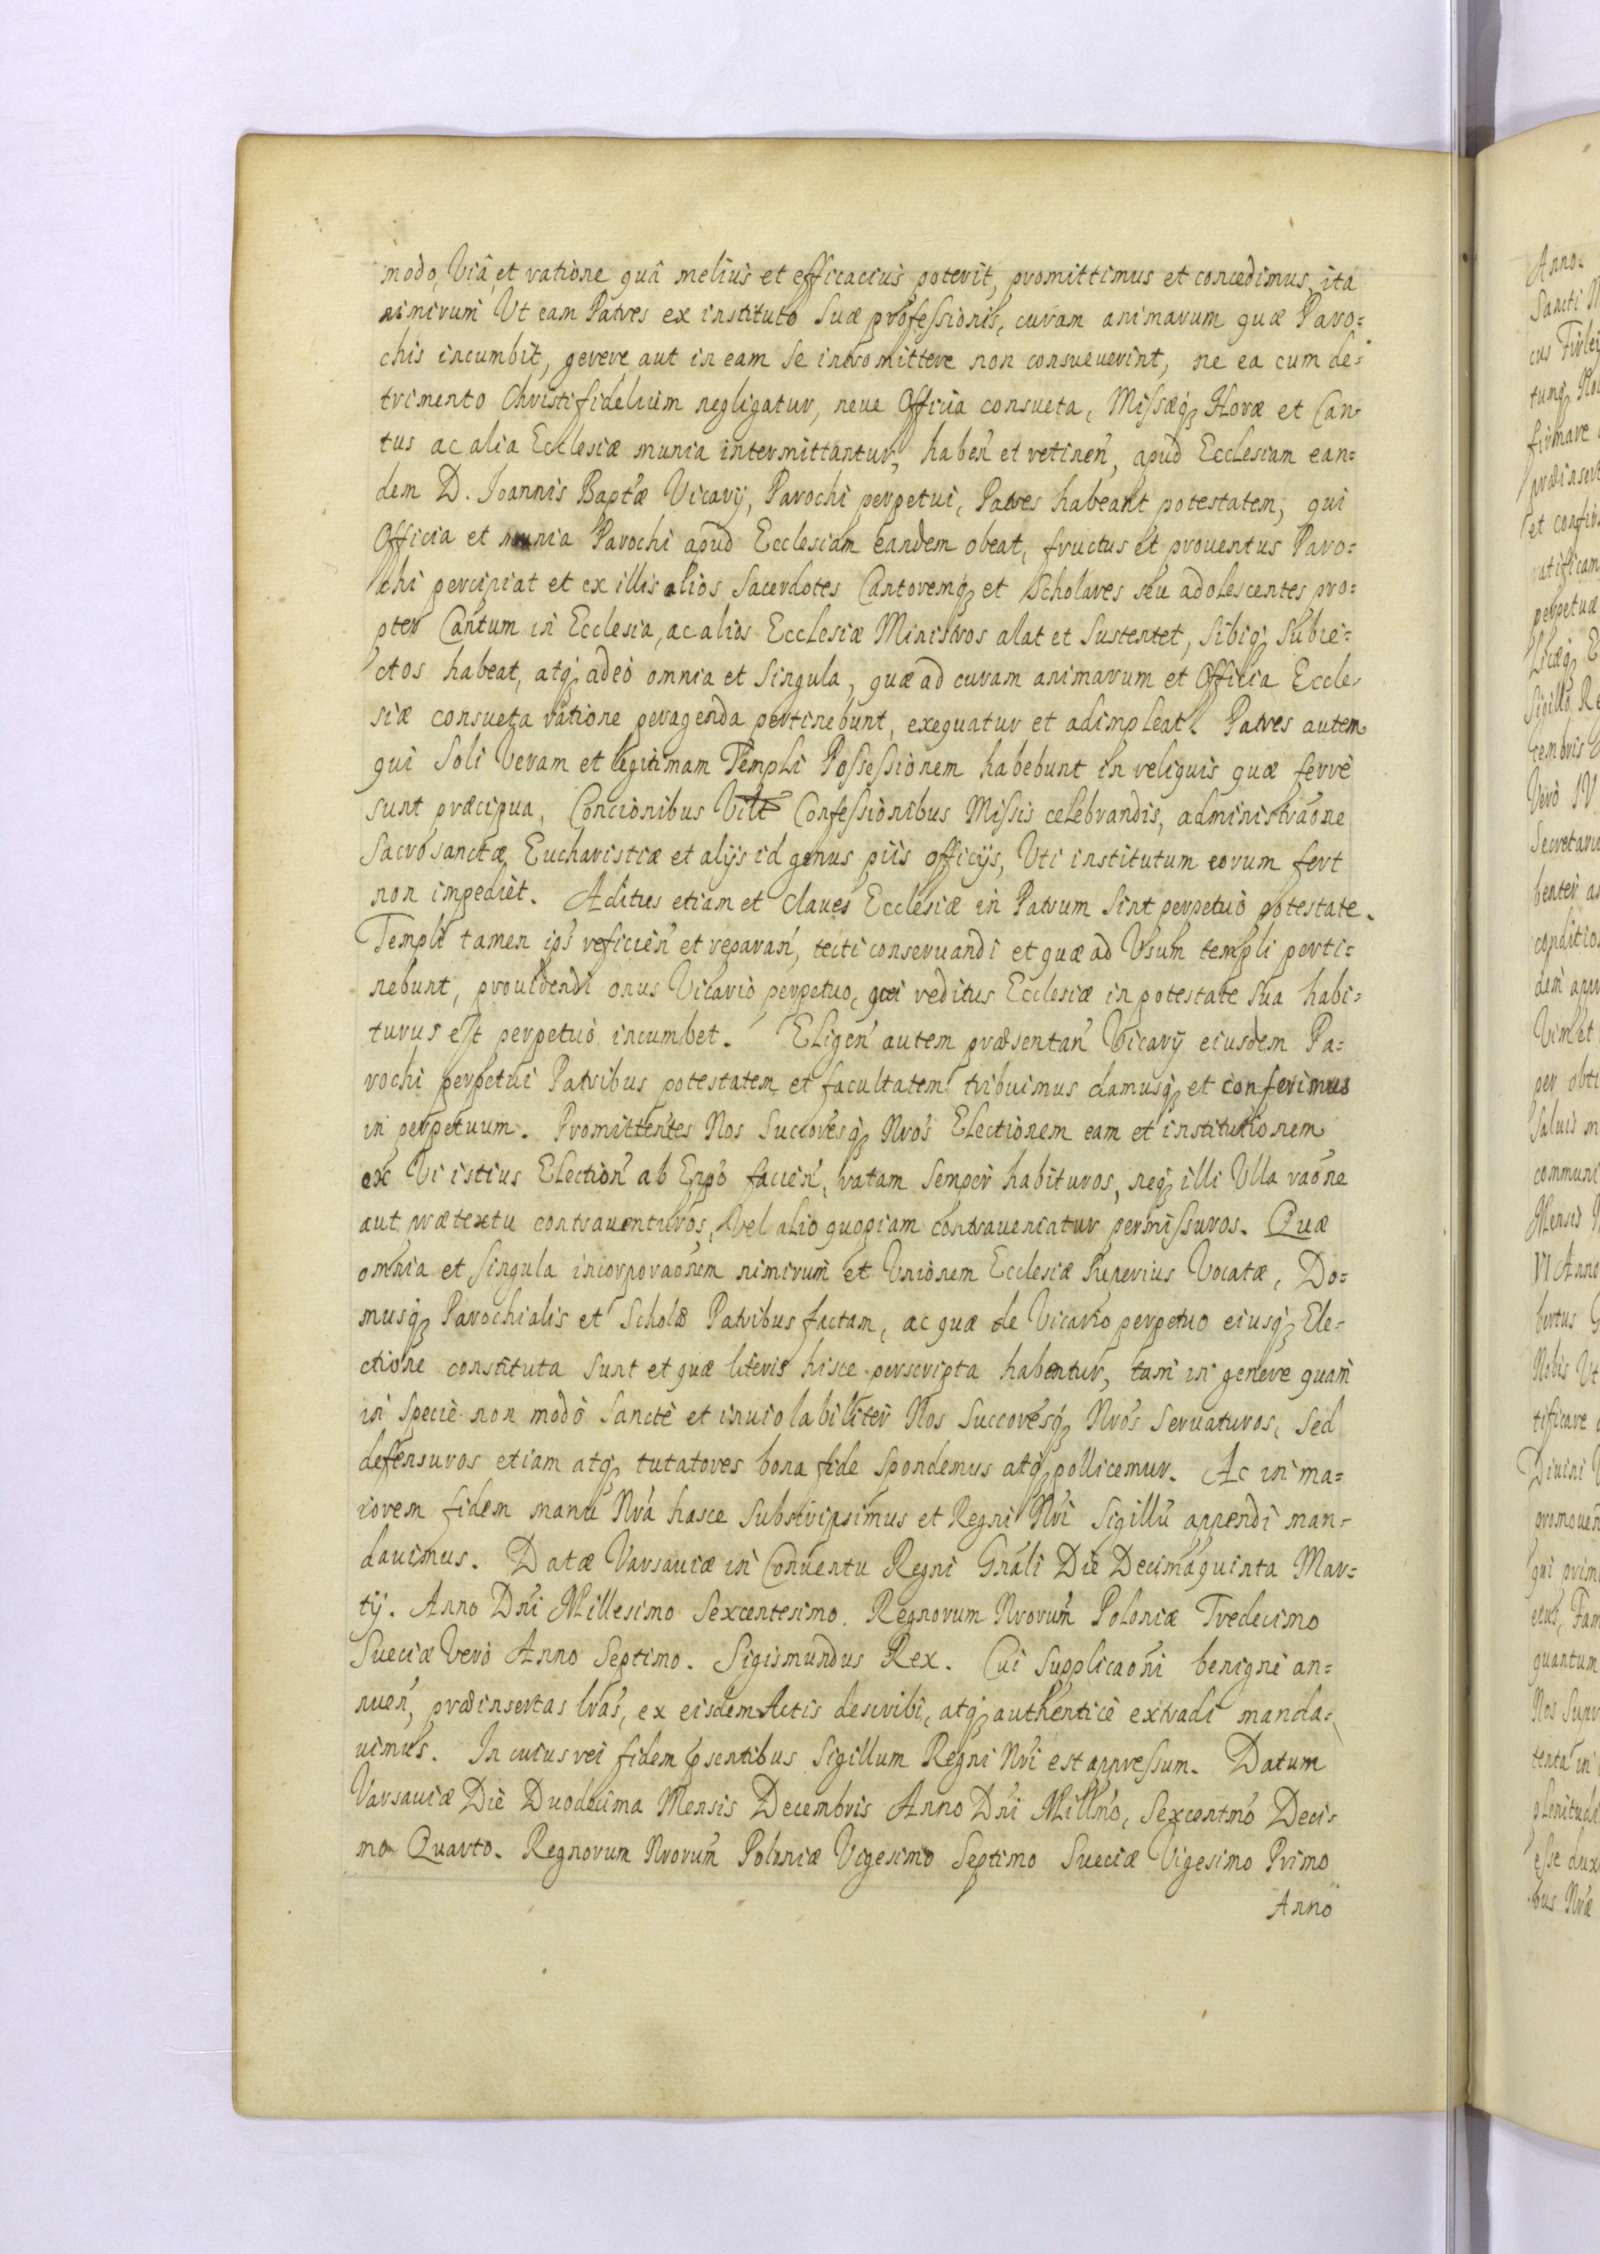 modo, Viâ, et ratione quâ melius et efficacius poterit, promittimus et concedimus, ita
nimirum Ut eam Patres ex instituto Suæ professionis, curam animarum quæ Paro=
chis incumbit, gerere, aut in eam se intromittere non consueverint, ne ea cum de=
trimento Christifidelium negligatur, neue Officia consueta, Missæq; Horæ et Can=
tus ac alia Ecclesiæ munia intermittantur, haben̄ et retinen̄, apud Ecclesiam ean=
dem D. Joannis Baptæ Vicarÿ, Parochi perpetui, Patres habeant potestatem, qui
Officia et munia Parochi apud Ecclesiam eandem obeat, fructus et prouentus Paro=
chi percipiat et ex illis alios Sacerdotes Cantoremq; et Scholares seu adolescentes pro=
pter Cantum in Ecclesia, ac alios Ecclesiæ Ministros alat et Sustentet, Sibiq; Subie=
ctos habeat, atq; adeò omnia et Singula, quæ ad curam animarum et Officia Eccle=
siæ consueta ratione peragenda pertinebunt, exequatur et adimpleat. Patres autem
qui Soli Veram et legitimam Templi Possessionem habebunt in reliquis quæ ferrè
sunt præcipua, Concionibus Confessionibus Missis celebrandis, administraōne
Sacrosanctæ Eucharistiæ et alÿs id genus piis officÿs, Uti institutum eorum fert
non impediet. Aditus etiam et claues Ecclesiæ in Patrum Sint perpetuò potestate.
Templi tamen ips̄ reficien̄ et reparan̄, tecti conseruandi et quæ ad Usum templi perti=
nebunt, prouidendi onus Vicario perpetuo, qui reditus Ecclesiæ in potestate Sua habi=
turus est perpetuò incumbet. Eligen̄ autem præsentan̄ Vicarÿ eiusdem Pa=
rochi perpetui Patribus potestatem et facultatem tribuimus damusq; et conferimus
in perpetuum. Promittentes Nos Succoresq; Nros Electionem eam et institutionem
ex Vi istius Election̄ ab Eppo facien̄, ratam Semper habituros, neq; illi Ulla raōne
aut prætextu contrauenturos, Vel alio quopiam contraueniatur permissuros. Quæ
omnia et Singula incorporaōnem nimirum et Unionem Ecclesiæ Superius Vocatæ, Do=
musq; Parochialis et Scholæ Patribus factam, ac quæ de Vicario perpetuo eiusq; Ele=
ctione constituta Sunt et quæ literis hisce perscripta habentur, tam in genere quam
in Specie non modò Sanctè et inuiolabiliter Nos Succoresq; Nros Seruaturos, Sed
defensuros etiam atq; tutatores bona fide Spondemus atq; pollicemur. Ac in ma=
iorem fidem manu Nra hasce Subscripsimus et Regni Nri Sigillū appendi man=
dauimus. Datæ Varsauiæ in Conuentu Regni Gnāli Die Decimaquinta Mar=
tÿ. Anno Dni Millesimo Sexcentesimo. Regnorum Nrorum Poloniæ Tredecimo
Sueciæ Verò Anno Septimo. Sigismundus Rex. Cui Supplicaōni benignè an=
nuen̄, præinsertas lras, ex eisdem Actis describi, atq; authenticè extradi manda=
uimus. In cuius rei fidem psentibus Sigillum Regni Nri est appressum. Datum
Varsauiæ Die Duodecima Mensis Decembris Anno Dni Millmo, Sexcentmo Deci=
mo Quarto. Regnorum Nrorum Poloniæ Vigesimo Septimo Sueciæ Vigesimo Primo
Anno